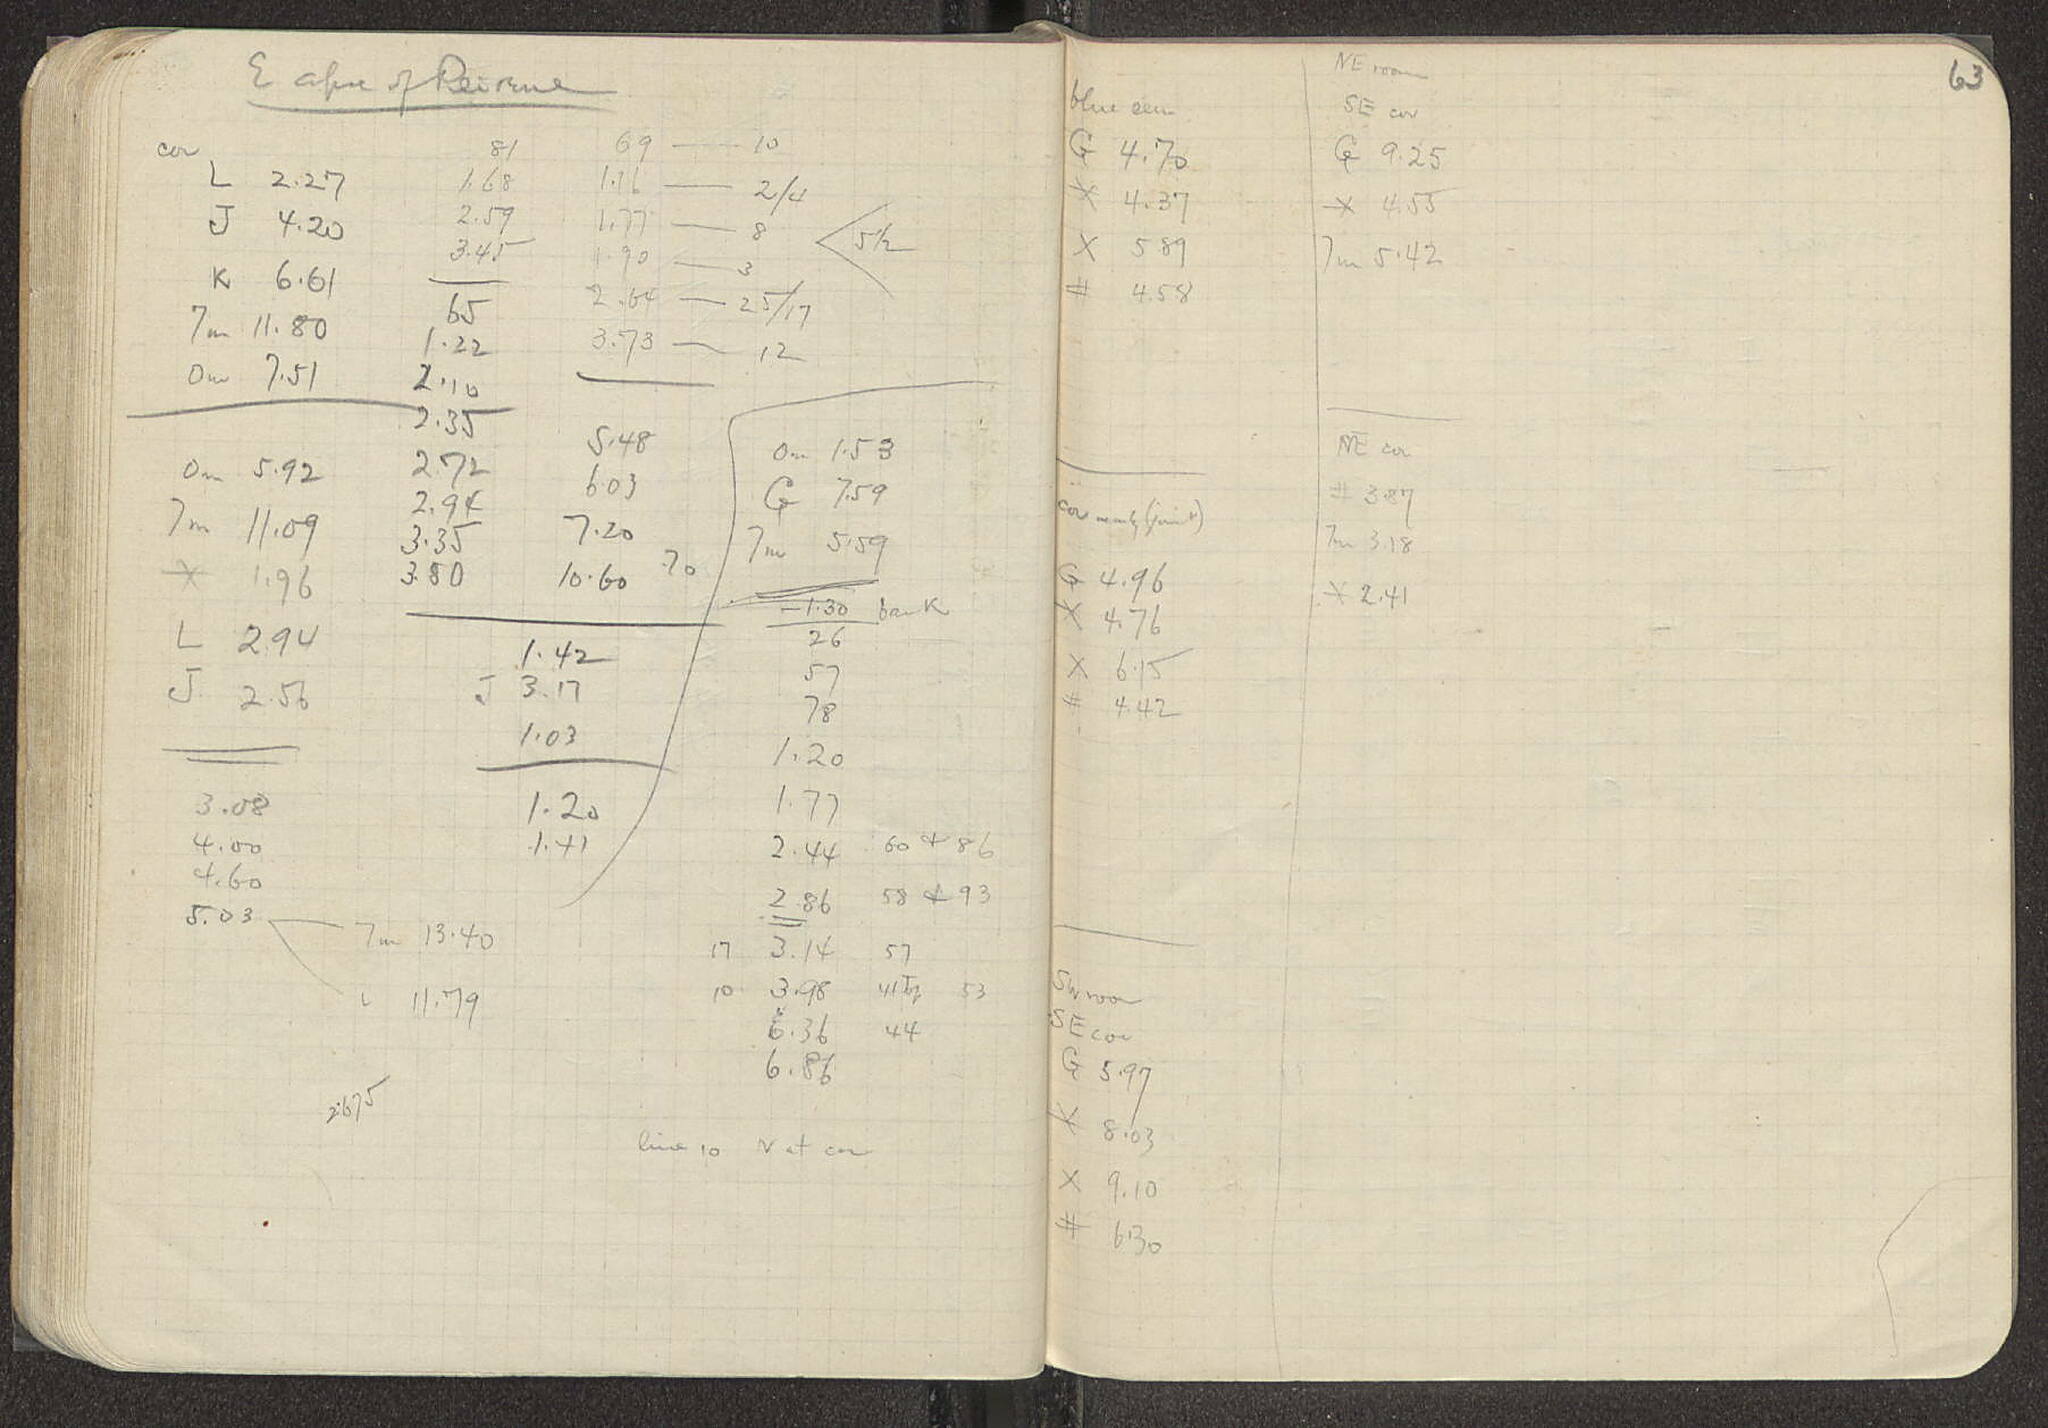 E apse of Peirene
cor
L 2.27
J 4.20
K 6.61
7m 11.80
0m 7.51
0m 5.92
7m 11.09
X 1.96
L 2.94
J 2.56
3.08
4.00
4.60
5.03
7m 13.40
L 11.79
2.675
81
1.68
2.59
3.45
65
1.22
2.10
2.35
2.72
2.94
3.35
3.80
69 — 10
1.16 — 2/4
1.77 — 8
1.90 — 3
2.64 — 25/17
3.73 — 12
5½
5.48
6.03
7.20
10.60 .70
1.42
J 3.17
1.03
1.20
1.41
0m 1.53
G 7.59
7m 5.59
-1.30 bank
26
57
78
1.20
1.77
2.44 60 + 86
2.86 58 + 93
17 3.14 57
10 3.98 41 53
6.36 44
6.86
line 10 N at cor
63
blue cem
G 4.70
X 4.37
X 5.89
# 4.58
cor nearly (joint)
G 4.96
X 4.76
X 6.15
# 4.42
SW room
SE cor
G 5.97
X 8.03
X 9.10
# 6.30
NE room
SE cor
G 9.25
X 4.55
7m 5.42
NE cor
# 3.87
7m 3.18
X 2.41